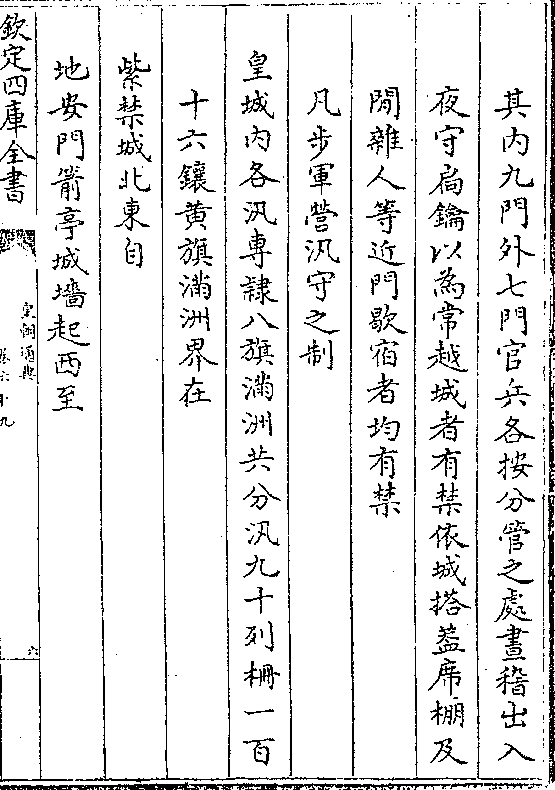 其内九門外七門官兵各按分管之處晝稽出入
夜守扃鑰以為常越城者有禁依城搭蓋席棚及
閒雜人等近門歇宿者均有禁
凡步軍營汛守之制
皇城内各汛専隷八旗滿洲共分汛九十列柵一百
十六鑲黄旗滿洲界在
紫禁城北東自
地安門箭亭城墻起西至
欽定四庫全書
皇朝通典
卷六十九
六